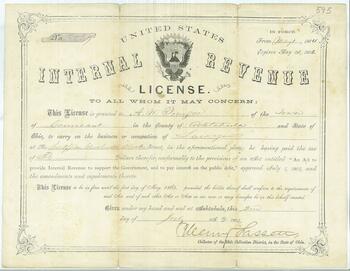 595
No.
UNITED STATES
IN FORCE
From May 1, 186
Expires May 1st, 186
INTERNAL REVENUE
LICENSE.
TO ALL WHOM IT MAY CONCERN:
This License is granted to A. W. of the town
of Conneaut in the County of Ashtabula and State of
Ohio, to carry on the business or occupation of
at Street, in the aforementioned place, he having paid the tax
of Dollars therefor, conformably to the provisions of an Act entitled "An Act to
provide Internal Revenue to support the Government, and to pay interest on the public debt," approved July 1, 1862, and
the amendments and supplements thereto.
This License to be in force until the first day of May 186 , provided the holder thereof shall conform to the requirements of
said Act and of such other Act or Acts as are now or may hereafter be in this behalf enacted.
Given under my hand and seal at Ashtabula, this
day of July 186
Henry Fassett
Collector of the 19th Collection District, in the State of Ohio.